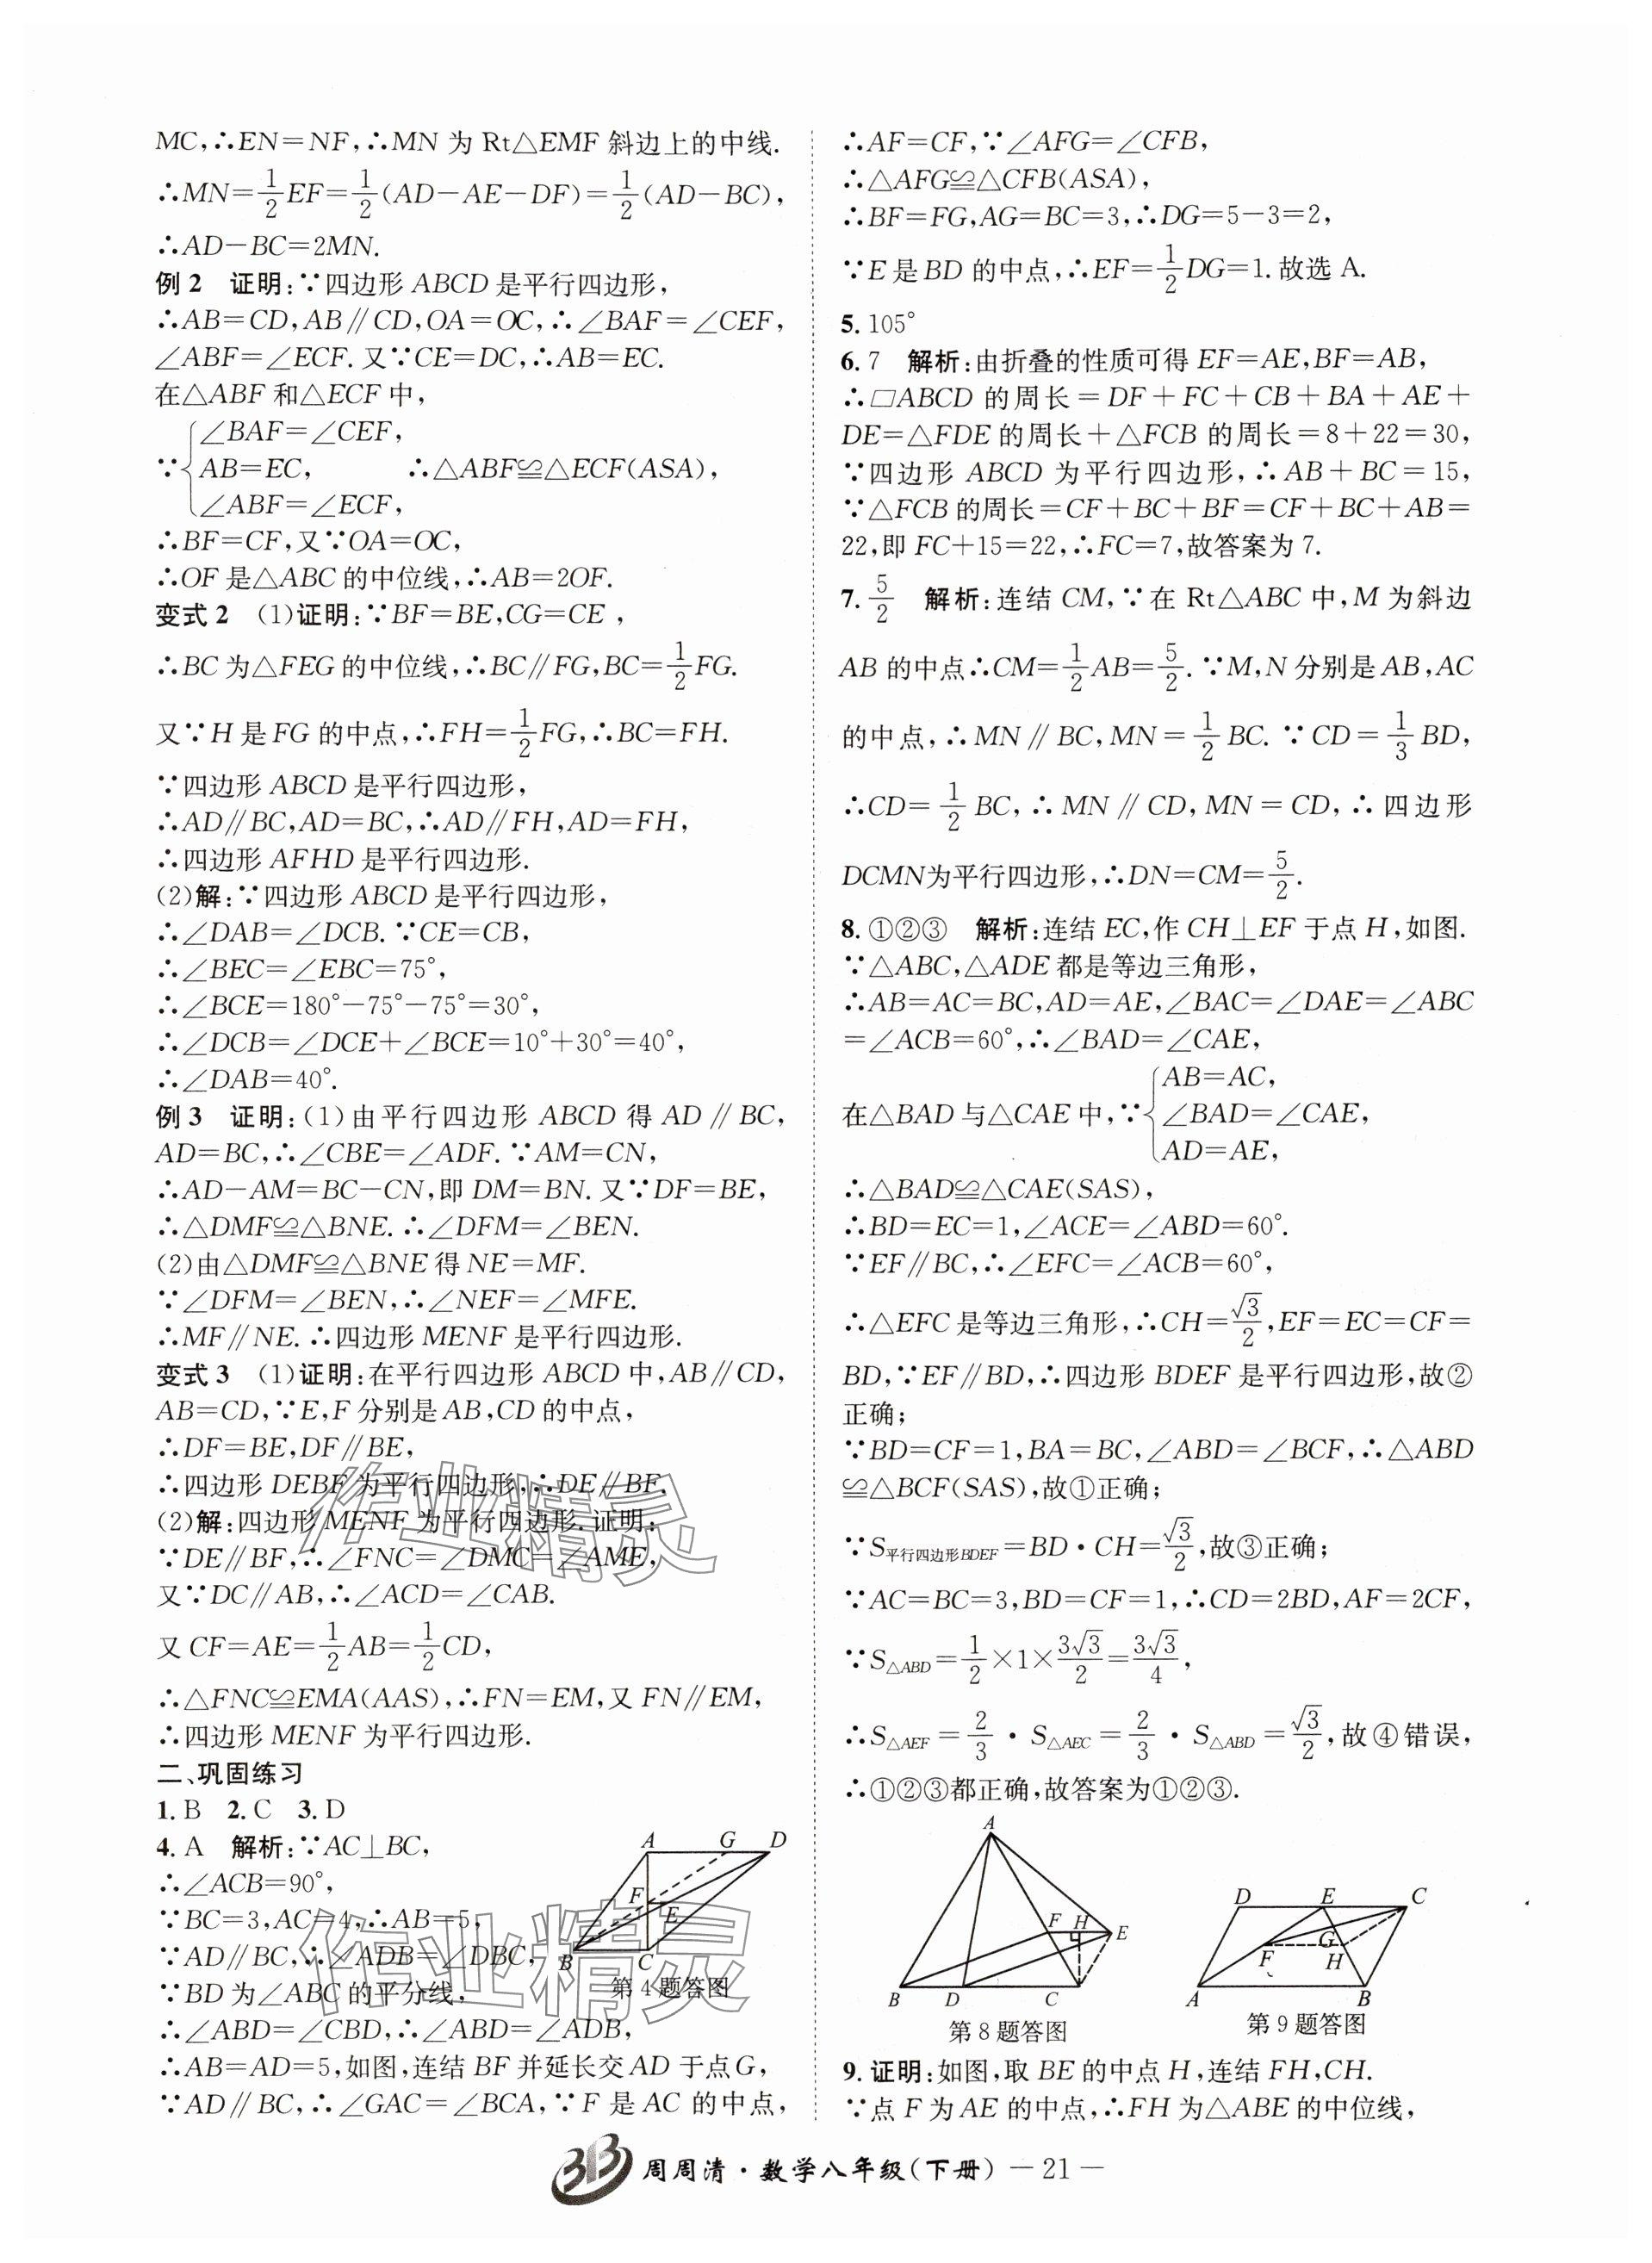 MC,∴EN=NF,∴MN 为 Rt△EMF 斜边上的中线.
∴MN=1/2EF=1/2(AD-AE-DF)=1/2(AD-BC),
∴AD-BC=2MN.
例 2 证明:∵四边形 ABCD 是平行四边形,
∴AB=CD,AB∥CD,OA=OC,∴∠BAF=∠CEF,
∠ABF=∠ECF. 又∵CE=DC,∴AB=EC.
在△ABF 和△ECF 中,
∠BAF=∠CEF,
∵{AB=EC, ∴△ABF≌△ECF(ASA),
∠ABF=∠ECF,
∴BF=CF,又∵OA=OC,
∴OF 是△ABC 的中位线,∴AB=2OF.
变式 2 (1)证明:∵BF=BE,CG=CE ,
∴BC 为△FEG 的中位线,∴BC∥FG,BC=1/2FG.
又∵H 是 FG 的中点,∴FH=1/2FG,∴BC=FH.
∵四边形 ABCD 是平行四边形,
∴AD∥BC,AD=BC,∴AD∥FH,AD=FH,
∴四边形 AFHD 是平行四边形.
(2)解:∵四边形 ABCD 是平行四边形,
∴∠DAB=∠DCB. ∵CE=CB,
∴∠BEC=∠EBC=75°,
∴∠BCE=180°-75°-75°=30°,
∴∠DCB=∠DCE+∠BCE=10°+30°=40°,
∴∠DAB=40°.
例 3 证明:(1)由平行四边形 ABCD 得 AD∥BC,
AD=BC,∴∠CBE=∠ADF. ∵AM=CN,
∴AD-AM=BC-CN,即 DM=BN. 又∵DF=BE,
∴△DMF≌△BNE. ∴∠DFM=∠BEN.
(2)由△DMF≌△BNE 得 NE=MF.
∵∠DFM=∠BEN,∴∠NEF=∠MFE.
∴MF∥NE. ∴四边形 MENF 是平行四边形.
变式 3 (1)证明:在平行四边形 ABCD 中,AB∥CD,
AB=CD,∵E,F 分别是 AB,CD 的中点,
∴DF=BE,DF∥BE,
∴四边形 DEBF 为平行四边形,∴DE∥BF,
(2)解:四边形 MENF 为平行四边形. 证明:
∵DE∥BF,∴∠FNC=∠DMC=∠AME,
又∵DC∥AB,∴∠ACD=∠CAB.
又 CF=AE=1/2AB=1/2CD,
∴△FNC≌EMA(AAS),∴FN=EM,又 FN∥EM,
∴四边形 MENF 为平行四边形.
二、巩固练习
1. B 2. C 3. D
4. A 解析:∵AC⊥BC,
∴∠ACB=90°,
∵BC=3,AC=4,∴AB=5,
∵AD∥BC,∴∠ADB=∠DBC,
∵BD 为∠ABC 的平分线,
∴∠ABD=∠CBD,∴∠ABD=∠ADB,
∴AB=AD=5,如图,连结 BF 并延长交 AD 于点 G,
∵AD∥BC,∴∠GAC=∠BCA,∵F 是 AC 的中点,
A G D
F
E
B C
第 4 题答图
作业精灵
作业精灵
∴AF=CF,∵∠AFG=∠CFB,
∴△AFG≌△CFB(ASA),
∴BF=FG,AG=BC=3,∴DG=5-3=2,
∵E 是 BD 的中点,∴EF=1/2DG=1. 故选 A.
5. 105°
6. 7 解析:由折叠的性质可得 EF=AE,BF=AB,
∴▱ABCD 的周长=DF+FC+CB+BA+AE+
DE=△FDE 的周长+△FCB 的周长=8+22=30,
∵四边形 ABCD 为平行四边形,∴AB+BC=15,
∵△FCB 的周长=CF+BC+BF=CF+BC+AB=
22,即 FC+15=22,∴FC=7,故答案为 7.
7. 5/2 解析:连结 CM,∵在 Rt△ABC 中,M 为斜边
AB 的中点∴CM=1/2AB=5/2. ∵M,N 分别是 AB,AC
的中点,∴MN∥BC,MN=1/2BC. ∵CD=1/3BD,
∴CD=1/2BC,∴MN∥CD,MN=CD,∴四边形
DCMN为平行四边形,∴DN=CM=5/2.
8. ①②③ 解析:连结 EC,作 CH⊥EF 于点 H,如图.
∵△ABC,△ADE 都是等边三角形,
∴AB=AC=BC,AD=AE,∠BAC=∠DAE=∠ABC
=∠ACB=60°,∴∠BAD=∠CAE,
AB=AC,
在△BAD 与△CAE 中,∵{∠BAD=∠CAE,
AD=AE,
∴△BAD≌△CAE(SAS),
∴BD=EC=1,∠ACE=∠ABD=60°.
∵EF∥BC,∴∠EFC=∠ACB=60°,
∴△EFC 是等边三角形,∴CH=√3/2,EF=EC=CF=
BD,∵EF∥BD,∴四边形 BDEF 是平行四边形,故②
正确;
∵BD=CF=1,BA=BC,∠ABD=∠BCF,∴△ABD
≌△BCF(SAS),故①正确;
∵S平行四边形BDEF=BD·CH=√3/2,故③正确;
∵AC=BC=3,BD=CF=1,∴CD=2BD,AF=2CF,
∵S△ABD=1/2×1×3√3/2=3√3/4,
∴S△AEF=2/3·S△AEC=2/3·S△ABD=√3/2,故④错误,
∴①②③都正确,故答案为①②③.
A
F H E
B D C
第 8 题答图
D E C
F G H
A B
第 9 题答图
9. 证明:如图,取 BE 的中点 H,连结 FH,CH.
∵点 F 为 AE 的中点,∴FH 为△ABE 的中位线,
3B 周周清·数学八年级(下册) — 21 —